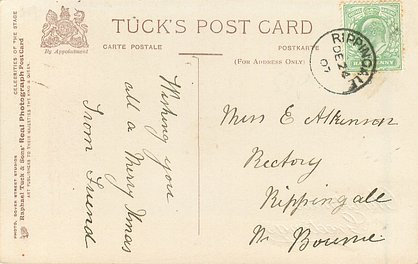 TUCK'S POST CARD
By Appointment
CARTE POSTALE
POSTKARTE
(FOR ADDRESS ONLY)
RIPPINGALE
DE 24
07
HALFPENNY
PHOTO. DOVER STREET STUDIOS
CELEBRITIES OF THE STAGE
Raphael Tuck & Sons' Real Photograph PostCard
ART PUBLISHERS TO THEIR MAJESTIES THE KING & QUEEN.
Wishing you
all a Merry Xmas
from Friend
Miss E Atkinson
Rectory
Rippingale
Nr Bourne